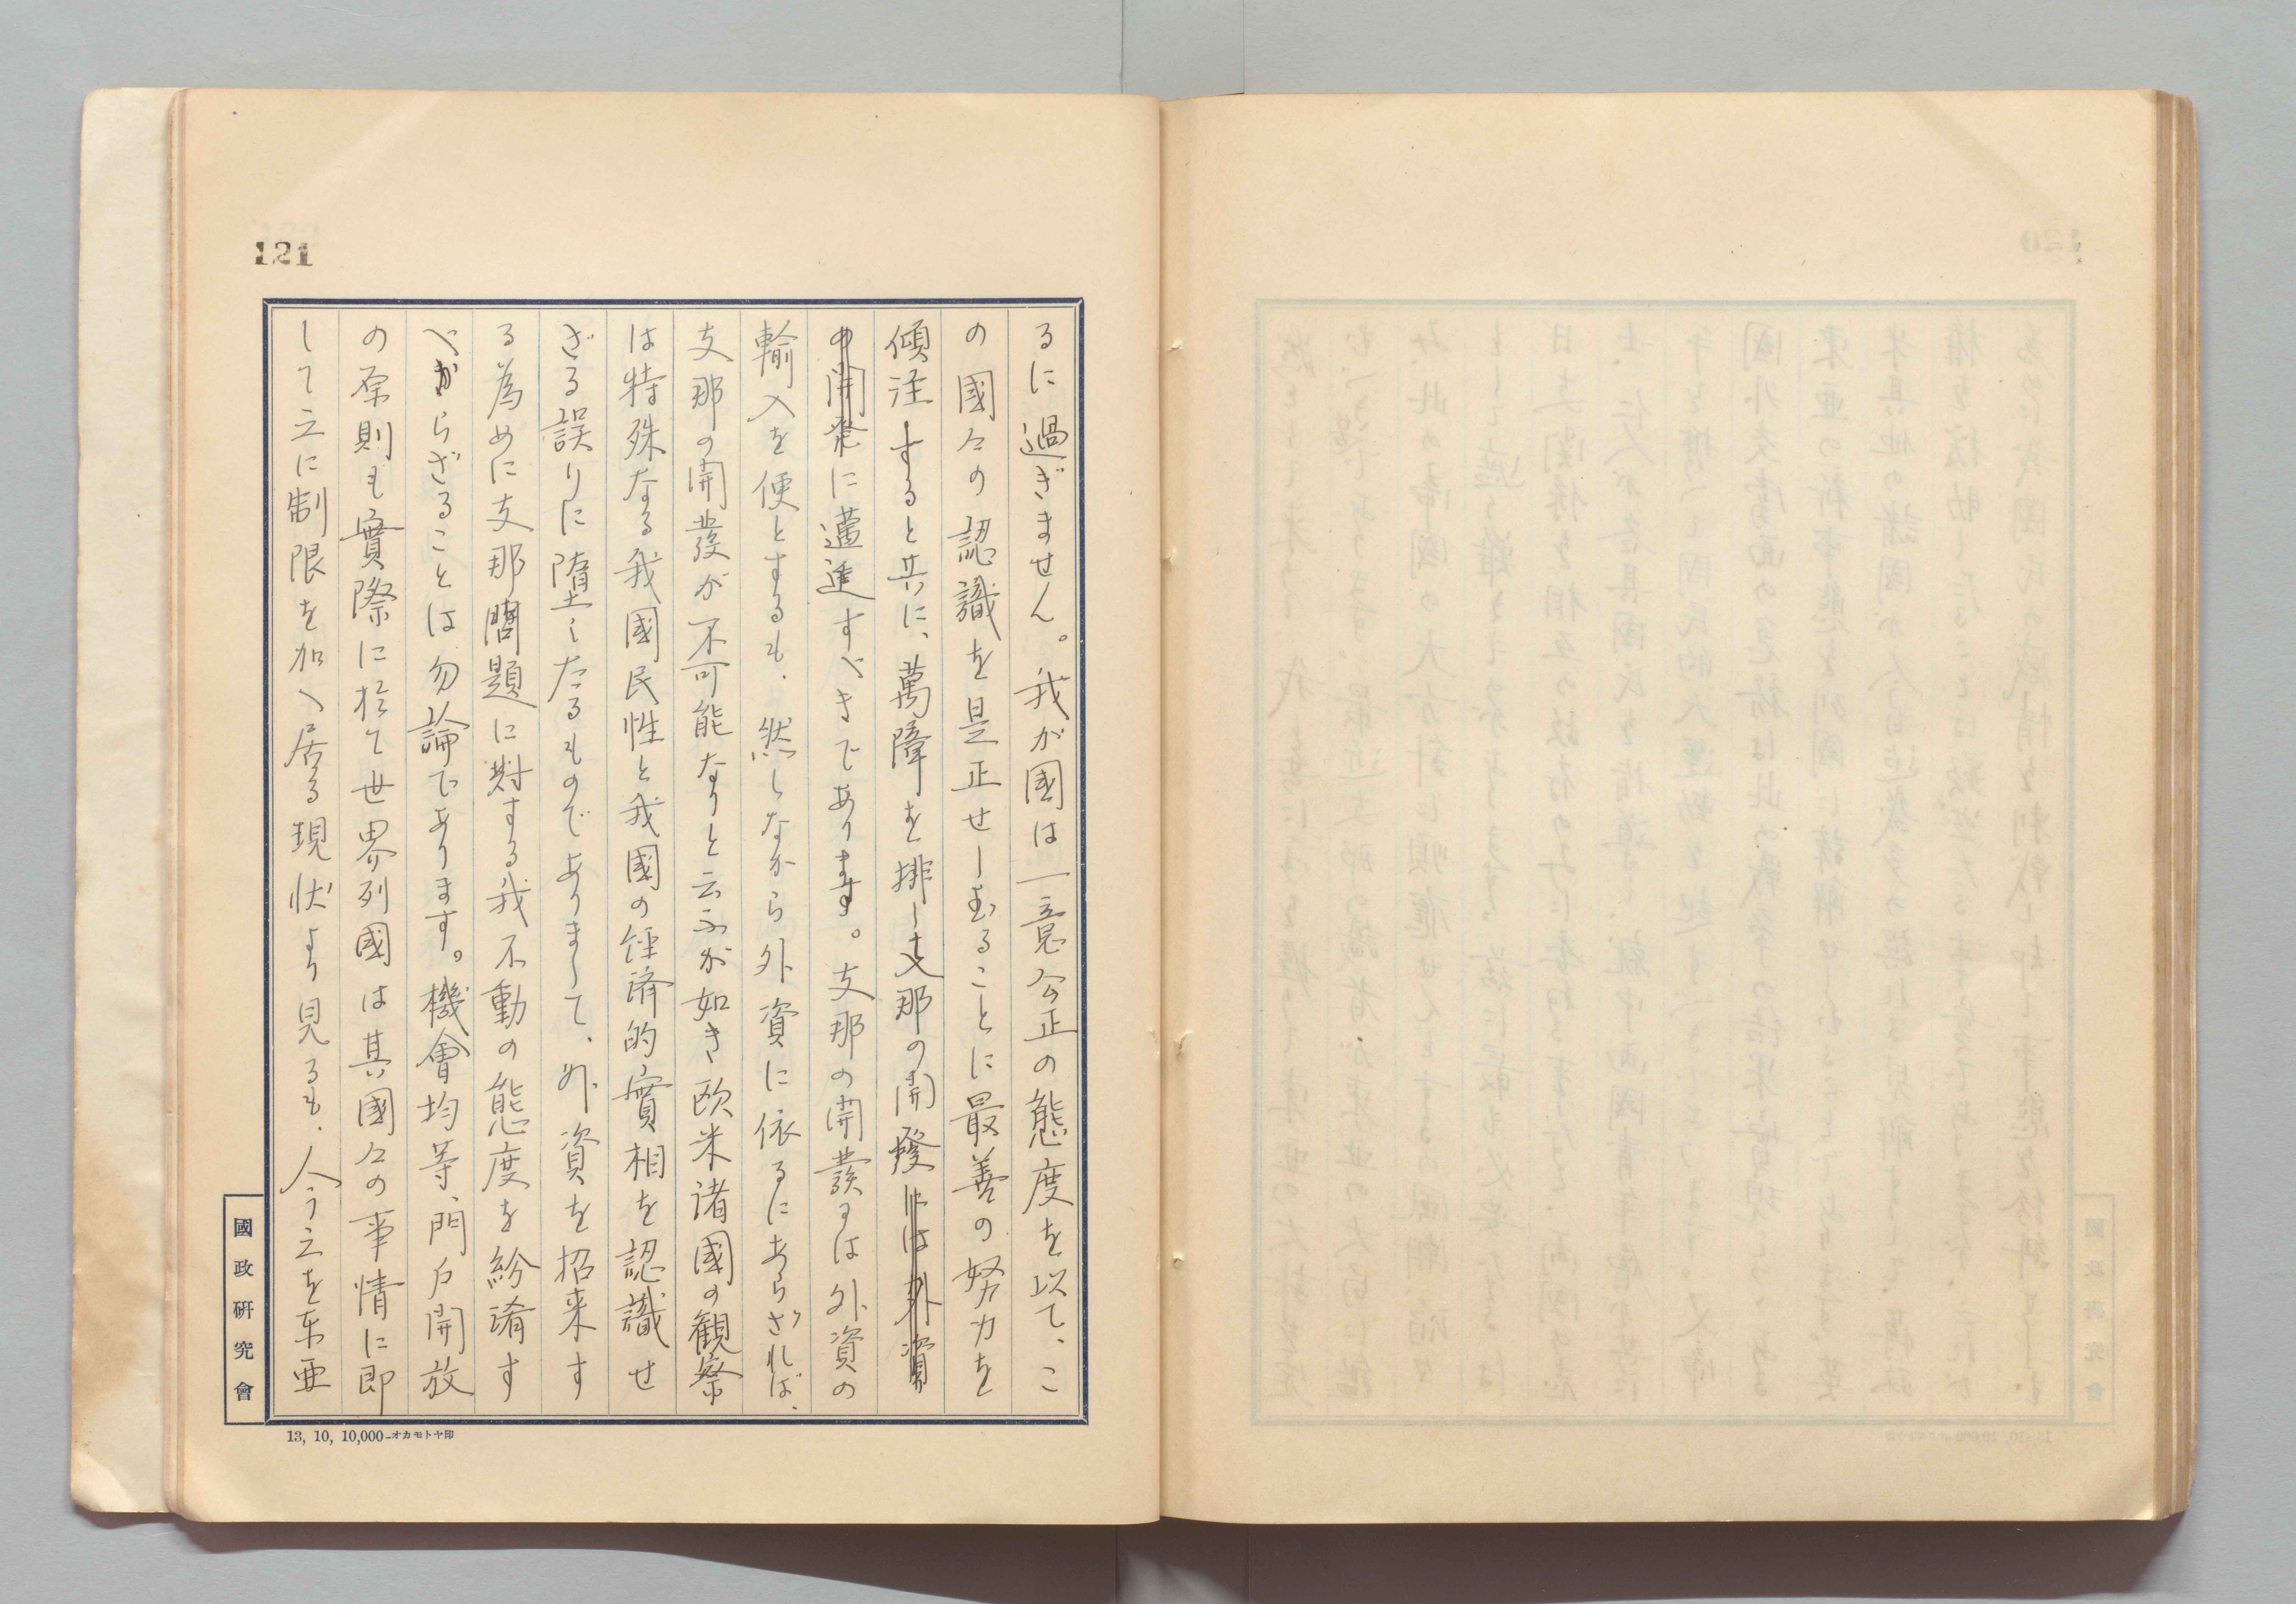 121
るに過ぎません。我が國は一意公正の態度を以て、こ
の國々の認識を是正せしむることに最善の努力を
傾注すると共に、萬障を排し支那の開發には外資
の開発に邁進すべきであります。支那の開發には外資の
輸入を便とするも、然しながら外資に依るにあらざれば、
支那の開發が不可能なりと云ふが如き欧米諸國の観察
は特殊なる我國民性と我國の経済的實相を認識せ
ざる誤りに墮したるものでありまして、外資を招来す
る為めに支那問題に対する我不動の態度を紛淆す
べからざることは勿論であります。機會均等、門戸開放
の原則も實際に於て世界列國は其國々の事情に即
して之に制限を加へ居る現状より見るも、今之を東亜
國政研究會
13, 10, 10,000-オカモトヤ印